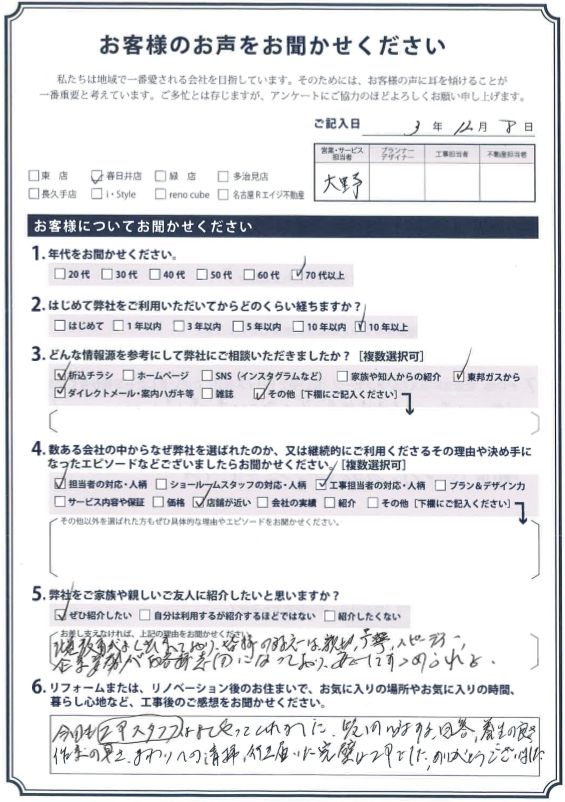 お客様のお声をお聞かせください
私たちは地域で一番愛される会社を目指しています。そのためには、お客様の声に耳を傾けることが
一番重要と考えています。ご多忙とは存じますが、アンケートにご協力のほどよろしくお願い申し上げます。
ご記入日 3 年 12 月 8 日
営業・サービス担当者 プランナーデザイナー 工事担当者 不動産担当者
大野
□東 店 ☑春日井店 □緑 店 □多治見店
□長久手店 □i・Style □reno cube □名古屋Rエイジ不動産
お客様についてお聞かせください
1. 年代をお聞かせください。
□20代 □30代 □40代 □50代 □60代 ☑70代以上
2. はじめて弊社をご利用いただいてからどのくらい経ちますか?
□はじめて □1年以内 □3年以内 □5年以内 □10年以内 ☑10年以上
3. どんな情報源を参考にして弊社にご相談いただきましたか?［複数選択可］
☑折込チラシ □ホームページ □SNS（インスタグラムなど） □家族や知人からの紹介 ☑東邦ガスから
☑ダイレクトメール・案内ハガキ等 □雑誌 ☑その他［下欄にご記入ください］
4. 数ある会社の中からなぜ弊社を選ばれたのか、又は継続的にご利用くださるその理由や決め手に
なったエピソードなどございましたらお聞かせください。［複数選択可］
☑担当者の対応・人柄 □ショールームスタッフの対応・人柄 ☑工事担当者の対応・人柄 □プラン＆デザイン力
□サービス内容や保証 □価格 ☑店舗が近い □会社の実績 □紹介 □その他［下欄にご記入ください］
その他以外を選ばれた方もぜひ具体的な理由やエピソードをお聞かせください。
5. 弊社をご家族や親しいご友人に紹介したいと思いますか?
☑ぜひ紹介したい □自分は利用するが紹介するほどではない □紹介したくない
お差し支えなければ、上記の理由をお聞かせください
6. リフォームまたは、リノベーション後のお住まいで、お気に入りの場所やお気に入りの時間、
暮らし心地など、工事後のご感想をお聞かせください。
今回も工事スタッフはよくやってくれました、 回答、養生の良さ
作業の早さ、まわりへの清掃、 完璧な工事でした、ありがとうございました